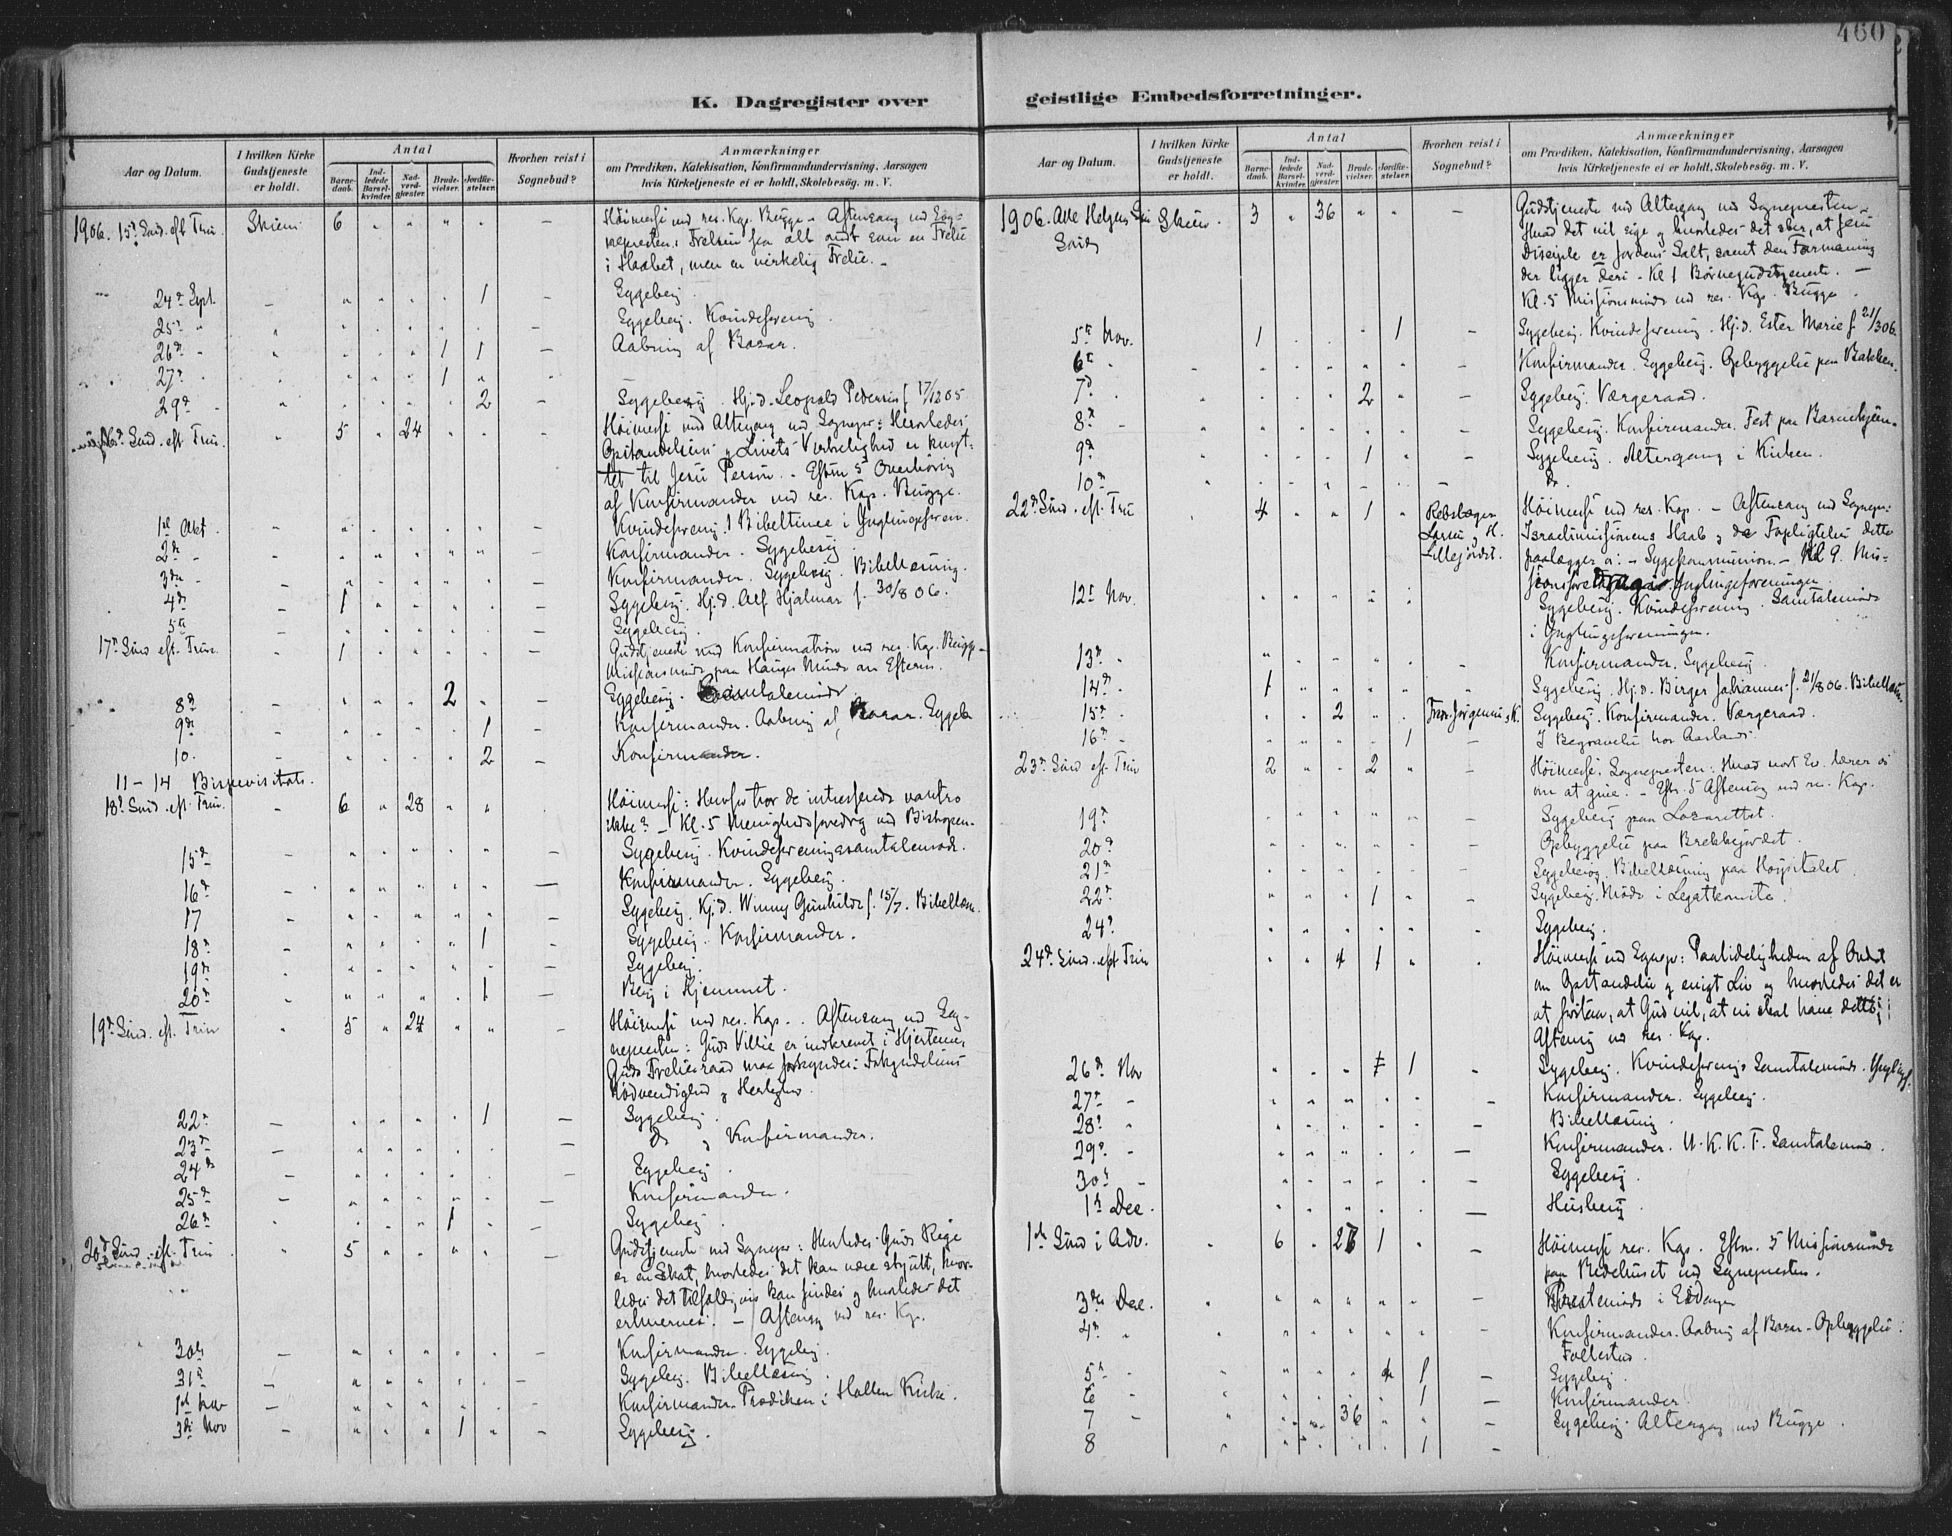 460
K. Dagregister over
geistlige Embedsforretninger.
Aar og Datum.
I hvilken Kirke Gudstjeneste er holdt.
Antal
Barnedaab.
Indledede Barselkvinder.
Nadverdgjæster.
Brudevielser.
Jordfæstelser.
Hvorhen reist i Sognebud?
Anmærkninger
om Prædiken, Katekisation, Konfirmandundervisning, Aarsagen
hvis Kirketjeneste ei er holdt, Skolebesøg. m. V.
1906. 15d Sønd. eft. Trin. Skien 6 " " " " — Høimesse ved res. Kap. Bugge. Aftensang ved Sog-
nepresten: Frelsen fra alt ondt som en Frelse
i Haabet, men en virkelig Frelse.
24d Sept. — " " " " 1 — Sygebesøg.
25d " " " " " " — Sygebesøg. Kvindeforening.
26d " " " " 1 1 — Aabning af Bazar.
27d " " " " 1 "
29d " " " " " 2 — Sygebesøg. Hj.d. Leopold Pedersen f. 17/12 05
16d Sønd. eft. Trin. " 5 " 24 " " Høimesse med Altergang ved Sognepr: Hvorledes
Opstandelsens og Livets Virkelighed er knyt-
tet til Jesu Person. - Eftm 5 Overhøring
af Konfirmander ved res. Kap. Bugge.
1st Okt. Kvindeforening. 1 Bibeltime i Ynglingeforen.
2d " Konfirmander. Sygebesøg.
3die " Konfirmander. Sygebesøg. Bibellæsning.
4d " — 1 Sygebesøg. Hj.d. Alf Hjalmar f. 30/8 06.
5te Sygebesøg.
17d Sønd eft. Trin. — 1 Gudstjeneste med Konfirmation ved res. Kap. Bugge
Missionsmøde paa Hauges Minde om Efterm.
8d — " " " 2 " Sygebesøg. Samtalemøde
9d — " " " " 1 — Konfirmander. Aabning af Bazar. Sygeb.
10. — " " " " 2 — Konfirmander.
11 – 14 Bispevisitats.
18d Sønd. eft. Trin. — 6 " 28 " " Høimesse: Hvorfor tror de interesserede vantro
ikke? — Kl. 5 Menighedsforedrag ved Biskopen.
15d — Sygebesøg. Kvindeforeningssamtalemøde.
16d — Konfirmander. Sygebesøg.
17 — Sygebesøg. Hj.d. Winny Gunhilde f. 15/7. Bibellæsn.
18d — " " " " 1 — Sygebesøg. Konfirmander.
19d — Sygebesøg.
20d — " " " " 1 — Besøg i Hjemmet.
19d Sønd. eft. Trin " 5 " 24 " " Høimesse ved res. Kap. Aftensang ved Sog-
nepresten: Guds Villie er indskrevet i Hjerterne,
Guds Frelsesraad maa forkyndes: Forkyndelsens
Nødvendighed og Herlighed.
22d — " " " " 1 — Sygebesøg.
23d — Do og Konfirmander.
24d Sygebesøg.
25d — Konfirmander.
26d " " " 1 " Sygebesøg.
20d Sønd. eft. Trin " 5 " " " " Gudstjeneste ved Sognepr: Hvorledes Guds Rige
er en Skat, hvorledes det kan være skjult, hvor-
ledes det tilfældigvis kan findes og hvorledes det
erhverves. — Aftensg ved res. Kap.
30d — Konfirmander. Sygebesøg.
31d — Sygebesøg. Bibellæsning.
1st Nov — Konfirmander. Prædiken i Hollen Kirke.
3die Nov — " " " 1 " — Sygebesøg.
Aar og Datum.
I hvilken Kirke Gudstjeneste er holdt.
Antal
Barnedaab.
Indledede Barselkvinder.
Nadverdgjæster.
Brudevielser.
Jordfæstelser.
Hvorhen reist i Sognebud?
Anmærkninger
om Prædiken, Katekisation, Konfirmandundervisning, Aarsagen
hvis Kirketjeneste ei er holdt, Skolebesøg. m. V.
1906. Alle Helgens Sønd. Skien. 3 " 36 " " — Gudstjeneste med Altergang ved Sognepresten.
Hvad det vil sige og hvorledes det sker, at Jesu
Disciple er Jordens Salt, samt den Formaning
der ligger deri. - Kl 1 Børnegudstjeneste. —
Kl. 5 Missionsmøde ved res. Kap. Bugge.
5te Nov. 1 " " " 1 — Sygebesøg. Kvindeforening. Hj.d. Ester Marie f. 21/3 06.
6te " Konfirmander. Sygebesøg. Opbyggelse paa Bakken.
7d " " " " 2 " — Sygebesøg. Værgeraad.
8d " Sygebesøg. Konfirmander. Fest paa Barnehjem.
9d " " " 1 " — Sygebesøg. Altergang i Kirken.
10d Do
22d Sønd. eft. Trin 4 " " 1 " Rebslager
Larsen og H.
Lillejordet.
Høimesse ved res. Kap. — Aftensang ved Sognepr:
Israelsmissionens Haab og de Forpligtelser dette
paalægger os. — Sygekommunion. — Kl 9. Mis-
sionsforedrag i Ynglingeforeningen.
12t Nov. Sygebesøg. Kvindeforening. Samtalemøde
i Ynglingeforeningen.
13d " Konfirmander. Sygebesøg.
14d " 1 Sygebesøg. Hj.d. Birger Johannes f. 21/8 06. Bibellæsn.
15d " " " 2 " " Sygebesøg. Konfirmander. Værgeraad.
16d " " " " " 1 — I Begravelse hos Aarlands.
23d Sønd eft. Trin 2 " " 2 " — Høimesse. Sognepresten: Hvad vort Ev. lærer os
om at give. — Eft. 5 Aftensg ved res. Kap.
19d Sygebesøg paa Lazarettet.
20d Opbyggelse paa Brekkejordet.
21d Sygebesøg. Bibellæsning paa Hospitalet.
22d " " " 1 " Sygebesøg. Møde i Legatkomite.
24d Sygebesøg.
24d Sønd. eft Trin " " 4 1 " Høimesse ved Sognepr: Paalideligheden af Ordet
om Opstandelse og evigt Liv og hvorledes det er
at forstaa, at Gud vil, at vi skal have dette.
Aftensg ved res. Kap.
26d Nov 1 — Sygebesøg. Kvindeforenings Samtalemøde. Ynglingf.
27d " Konfirmander. Sygebesøg.
28d " Bibellæsning.
29d " Konfirmander. U.K.K.F. Samtalemøde.
30d " Sygebesøg.
1st Dec. Husbesøg.
1st Sønd i Adv. " 6 " 1 " — Høimesse res. Kap. Eftm. 5 Missionsmøde
paa Bedehuset ved Sognepresten.
3die Dec. Prestemøde i Eidanger
4d " Konfirmander. Aabning af Bazar. Opbyggelse:
Follestad.
5d " 1 — Sygebesøg.
6 " 1 — Konfirmander.
7 " 36 Sygebesøg. Altergang ved Bugge.
8 1 —